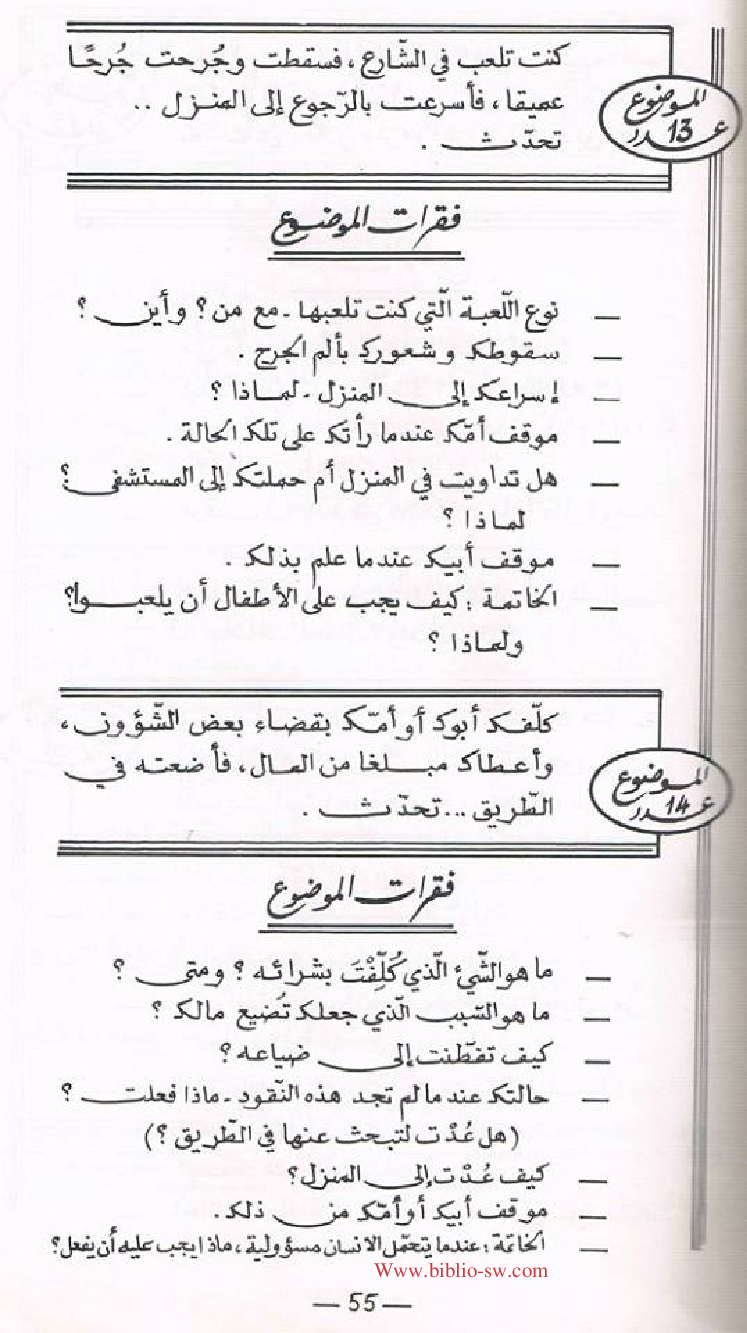 كنت تلعب في الشّارع، فسقطت وجُرحت جُرحًا
عميقا، فأسرعت بالرّجوع إلى المنزل ..
تحدّث .
الموضوع
عدد 13
فقرات الموضوع
— نوع اللّعبة الّتي كنت تلعبها - مع من؟ وأين ؟
— سقوطك وشعورك بألم الجرح .
— إسراعك إلى المنزل - لماذا ؟
— موقف أمّك عندما رأتك على تلك الحالة .
— هل تداويت في المنزل أم حملتك إلى المستشفى ؟
لماذا ؟
— موقف أبيك عندما علم بذلك .
— الخاتمة : كيف يجب على الأطفال أن يلعبوا؟
ولماذا ؟
كلّفك أبوك أو أمّك بقضاء بعض الشّؤون ،
وأعطاك مبلغا من المال، فأضعته في
الطّريق ... تحدّث .
الموضوع
عدد 14
فقرات الموضوع
— ما هو الشّيئ الّذي كُلِّفْتَ بشرائه ؟ ومتى ؟
— ما هو السّبب الّذي جعلك تُضيع مالك ؟
— كيف تفطّنت إلى ضياعه ؟
— حالتك عندما لم تجد هذه النّقود - ماذا فعلت ؟
(هل عُدْت لتبحث عنها في الطّريق ؟)
— كيف عُدْت إلى المنزل؟
— موقف أبيك أو أمّك من ذلك.
— الخاتمة : عندما يتحمّل الانسان مسؤولية ، ماذا يجب عليه أن يفعل؟
Www.biblio-sw.com
— 55 —